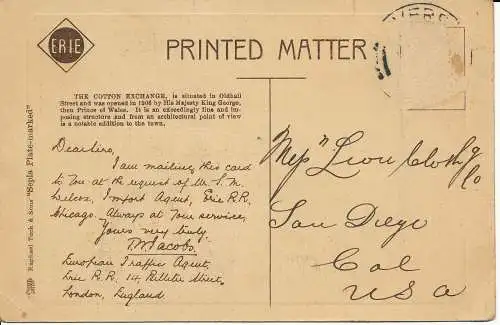 ERIE
PRINTED MATTER
THE COTTON EXCHANGE, is situated in Oldhall
Street and was opened in 1906 by His Majesty King George,
then Prince of Wales. It is an exceedingly fine and im-
posing structure and from an architectural point of view
is a notable addition to the town.
Raphael Tuck & Sons' "Sepia Plate-marked"
Dear Sirs,
I am mailing this card
to you at the request of Mr. S. M.
Wilcox, Import Agent, Erie R.R.
Chicago. Always at your service,
Yours very truly,
Jacobs.
European Traffic Agent,
Erie R.R. 14, Billiter Street.
London, England.
Mess'rs Lion Clothg
Co
San Diego
Cal
USA